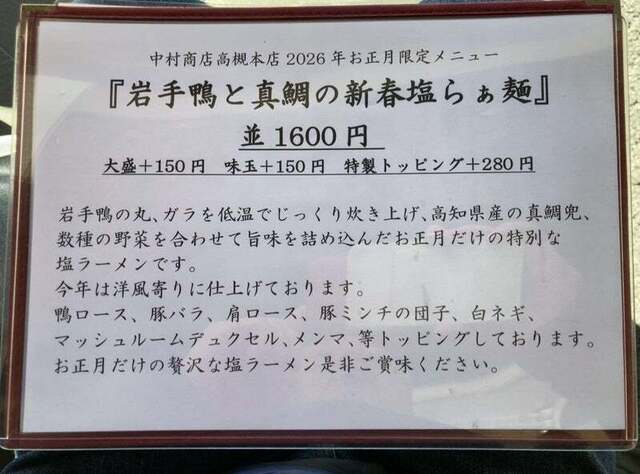 中村商店高槻本店 2026 年お正月限定メニュー
『岩手鴨と真鯛の新春塩らぁ麺』
並 1600 円
大盛+150 円 味玉+150 円 特製トッピング+280 円
岩手鴨の丸、ガラを低温でじっくり炊き上げ、高知県産の真鯛兜、
数種の野菜を合わせて旨味を詰め込んだお正月だけの特別な
塩ラーメンです。
今年は洋風寄りに仕上げております。
鴨ロース、豚バラ、肩ロース、豚ミンチの団子、白ネギ、
マッシュルームデュクセル、メンマ、等トッピングしております。
お正月だけの贅沢な塩ラーメン是非ご賞味ください。